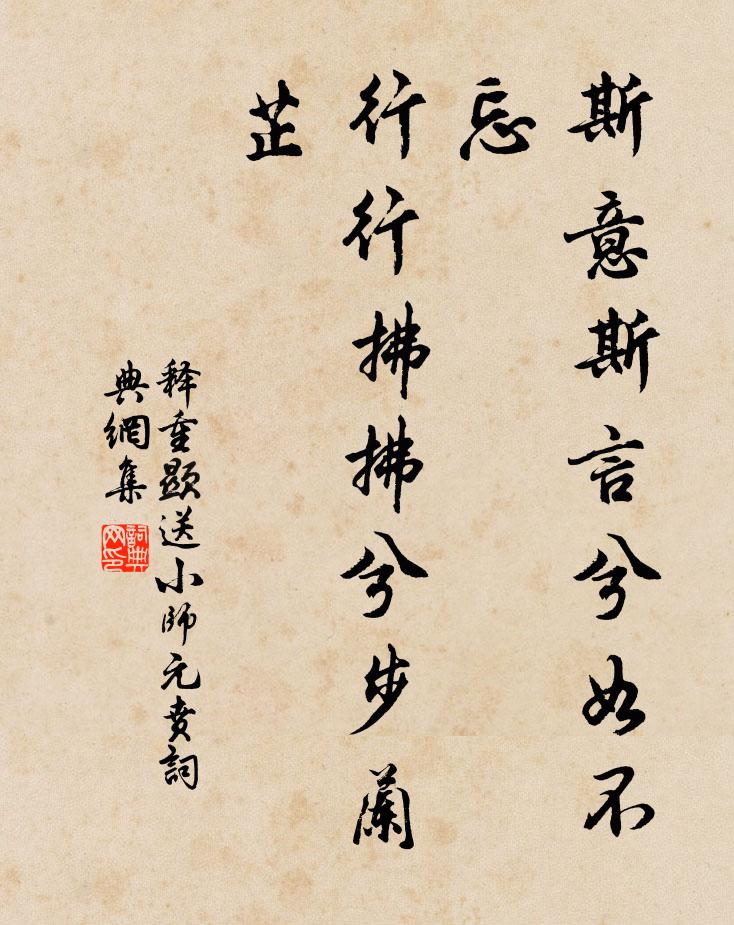 斯意斯言兮如不
忘
行行拂拂兮步蘭
芷
释重顯送小師元賁詞
典網集
詞典
网印